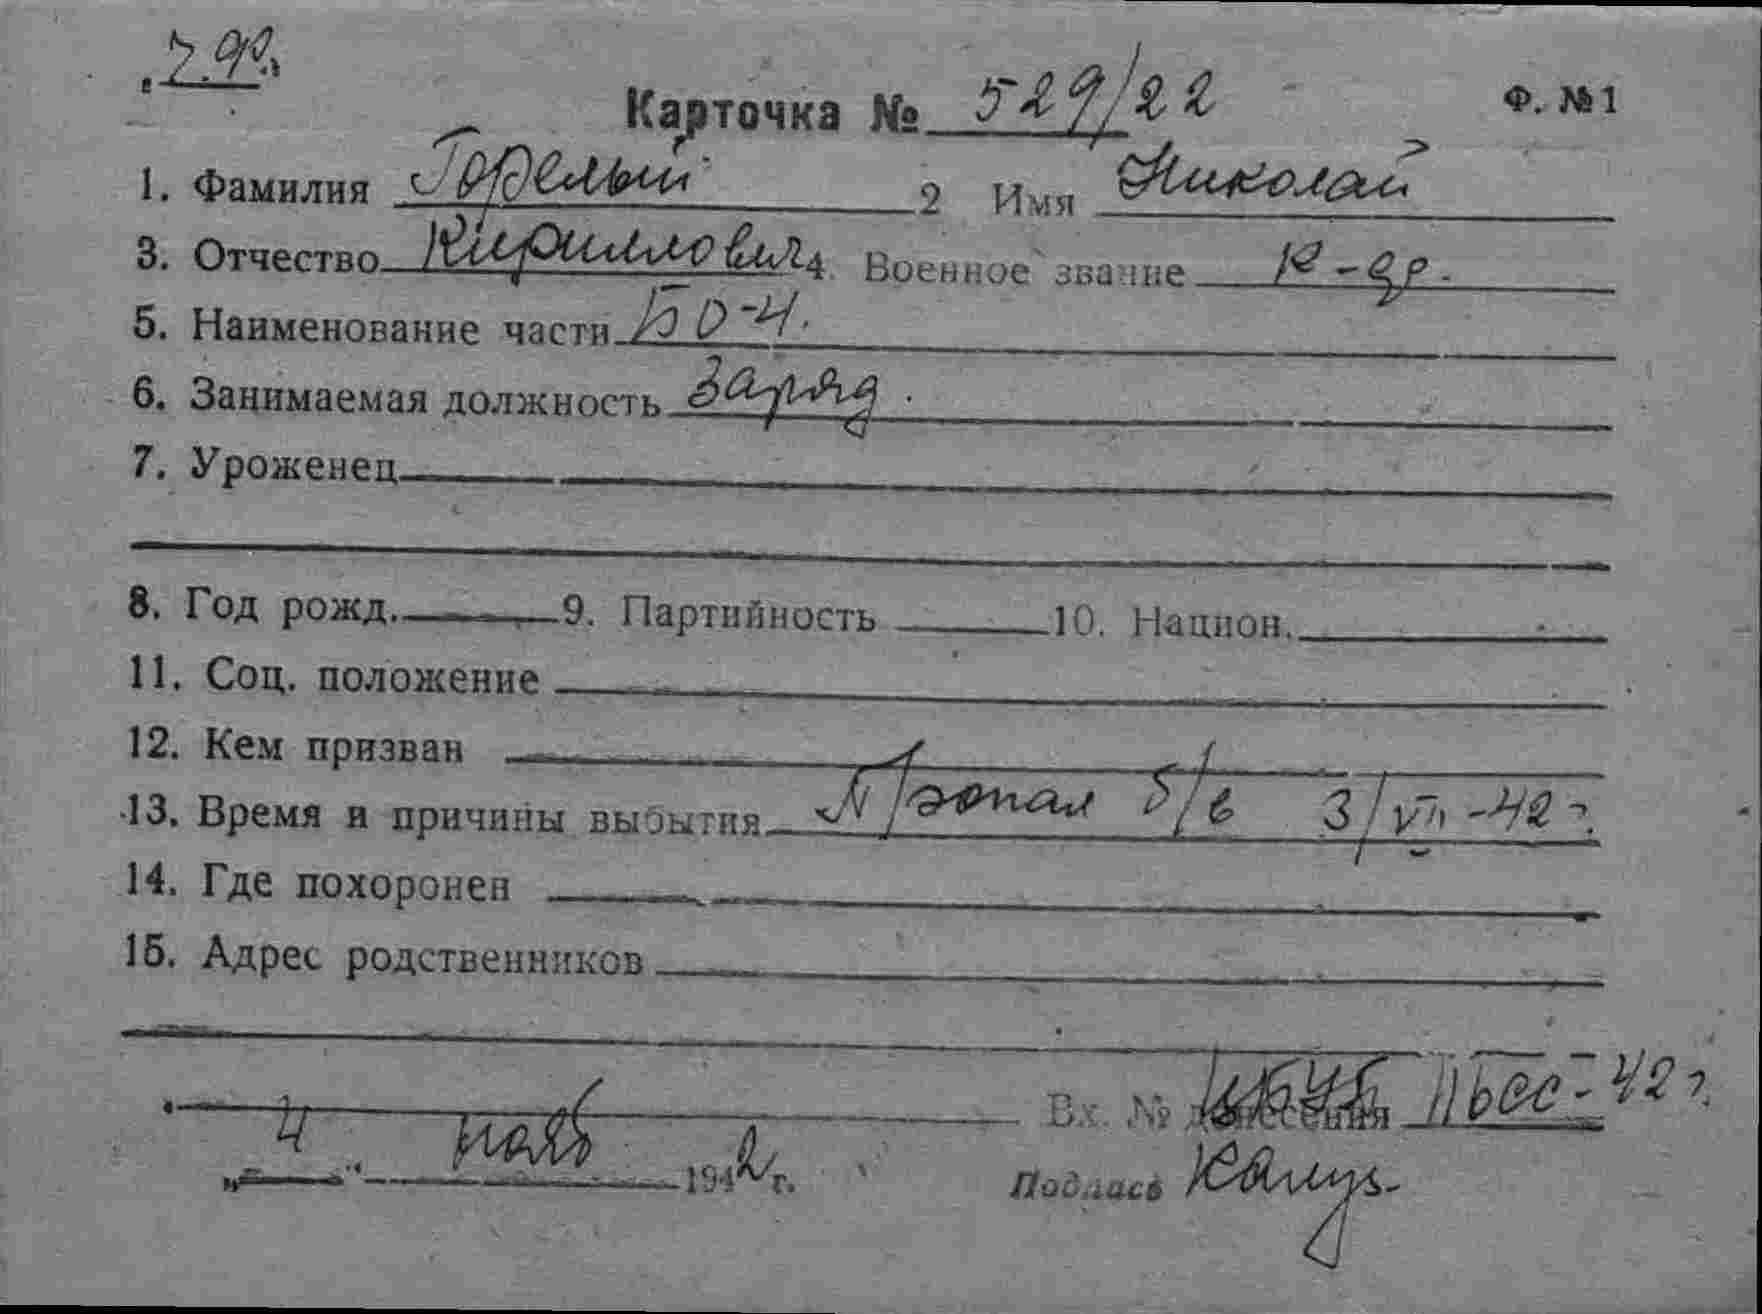 ч.ф.
Карточка № 529/22 Ф. №1
1. Фамилия Горелый 2 Имя Николай
3. Отчество Кириллович 4. Военное звание к-др.
5. Наименование части БО-4.
6. Занимаемая должность Заряд.
7. Уроженец
8. Год рожд. 9. Партийность 10. Национ.
11. Соц. положение
12. Кем призван
13. Время и причины выбытия Пропал б/в 3/VII-42 г.
14. Где похоронен
15. Адрес родственников
Вх. № донесения 42 г.
"4" нояб 1942 г. Подпись